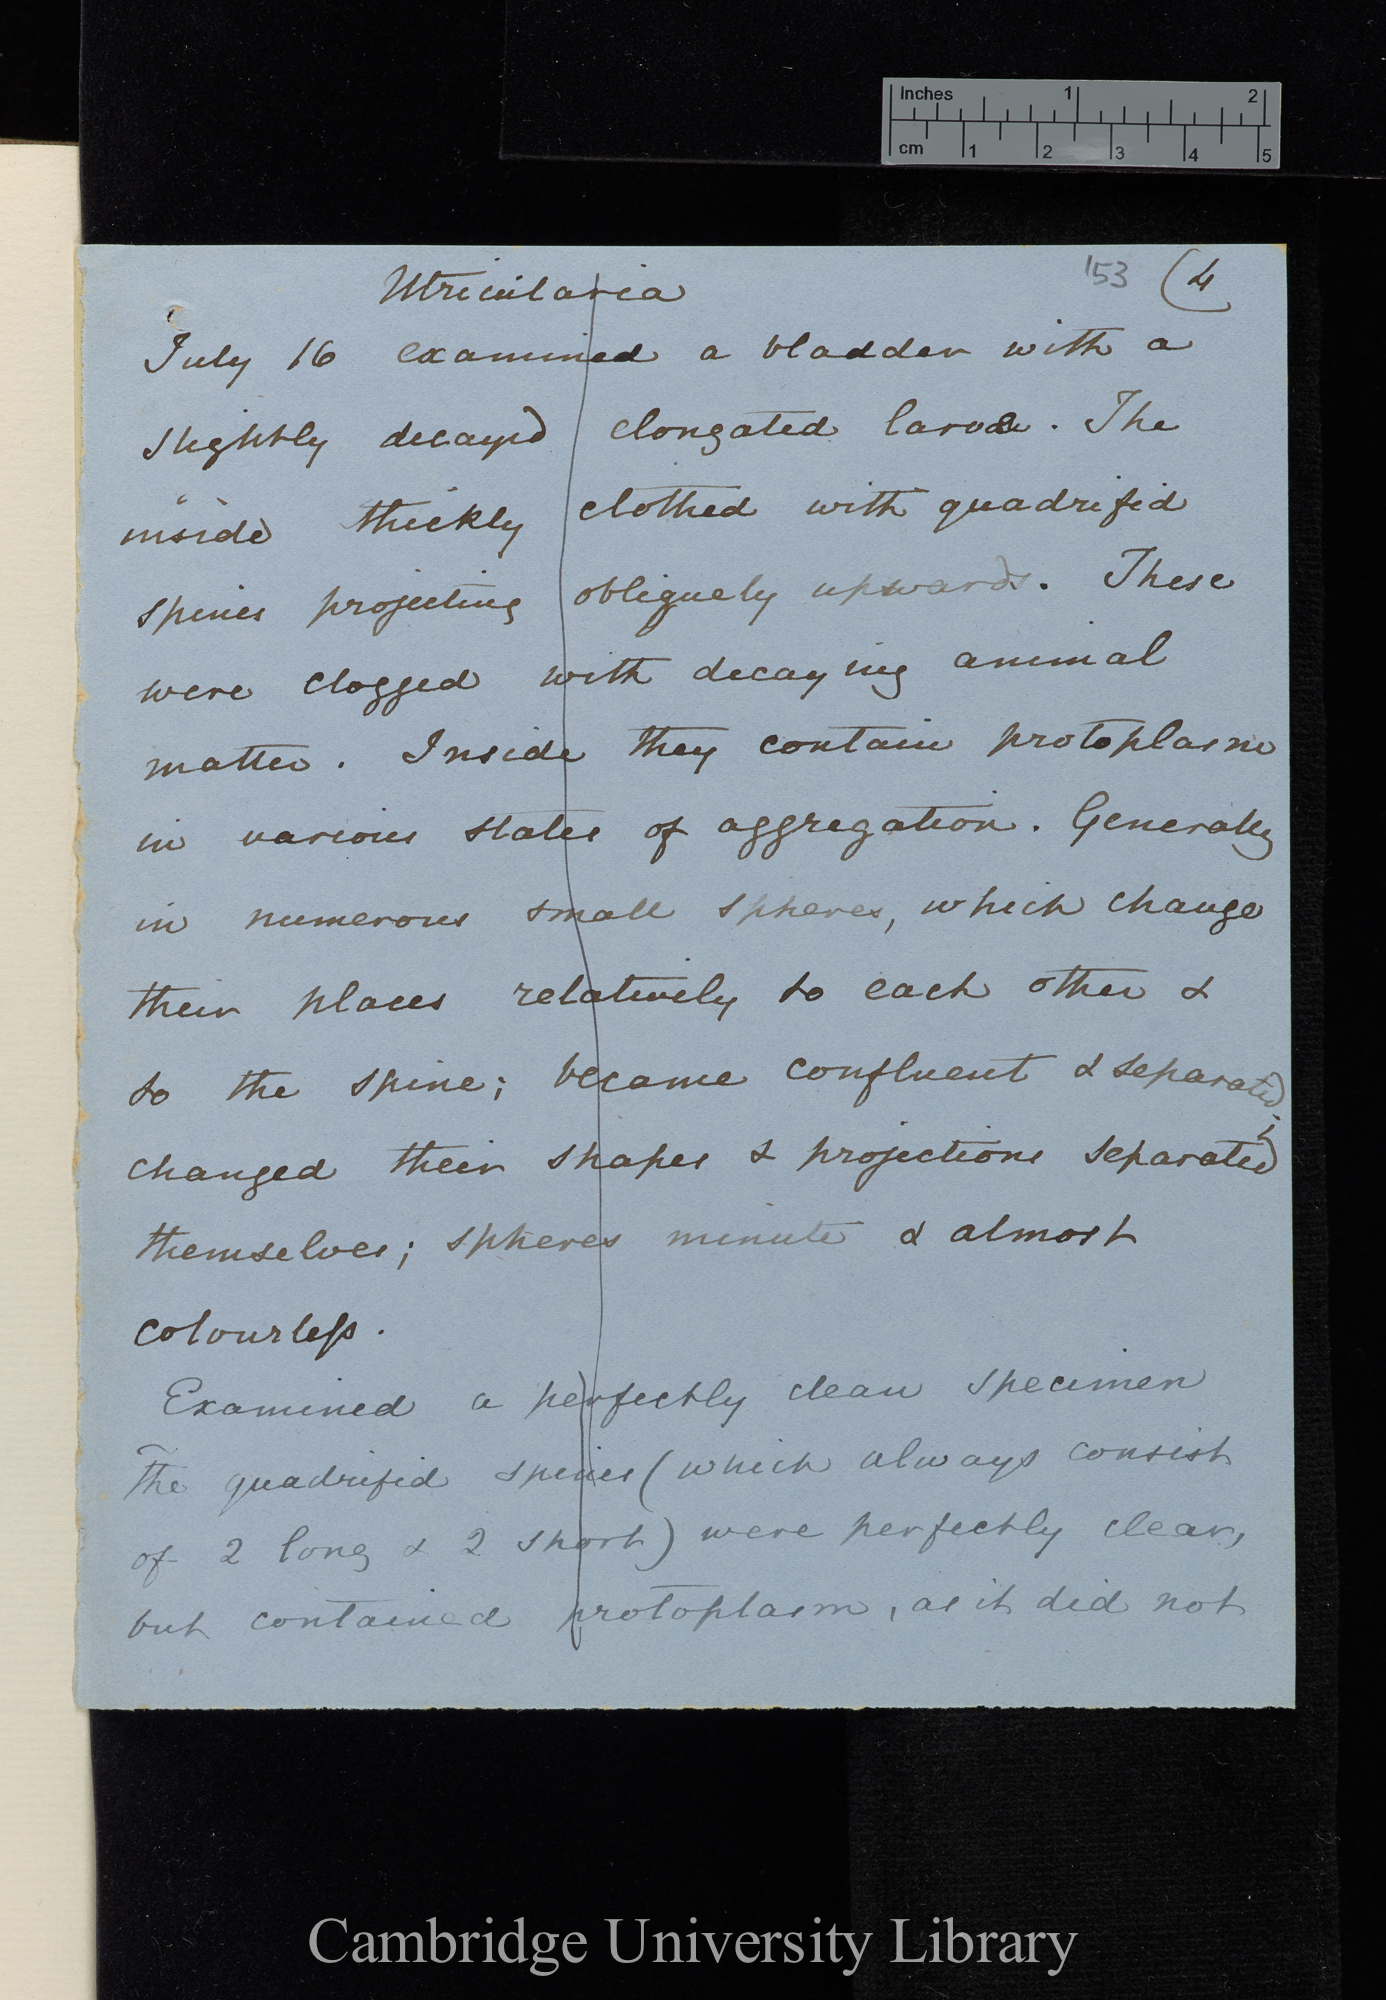 Inches 1 2
cm 1 2 3 4 5
Utricularia 153 (4
July 16 examined a bladder with a
slightly decayed elongated larva. The
inside thickly clothed with quadrifid
spines projecting obliquely upwards. These
were clogged with decaying animal
matter. Inside they contain protoplasm
in various states of aggregation. Generally
in numerous small spheres, which change
their places relatively to each other &
to the spine; became confluent & separated;
changed their shapes & projections separated
themselves; spheres minute & almost
colourless.
Examined a perfectly clean specimen
The quadrifid spines (which always consist
of 2 long & 2 short) were perfectly clear,
but contained protoplasm, as it did not
Cambridge University Library